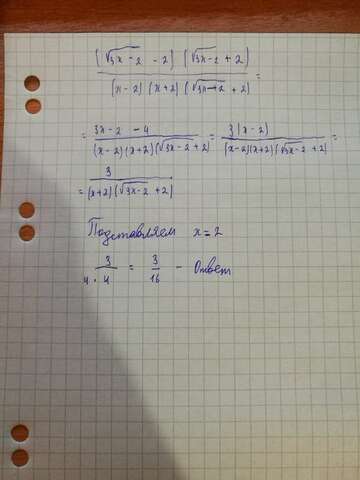 (√3x-2 - 2) (√3x-2 + 2) / (x-2) (x+2) (√3x-2 + 2) =
= 3x-2 - 4 / (x-2) (x+2) (√3x-2 + 2) = 3(x-2) / (x-2)(x+2) (√3x-2 + 2) =
= 3 / (x+2) (√3x-2 + 2)
Подставляем x=2
3 / 4 · 4 = 3 / 16 - Ответ